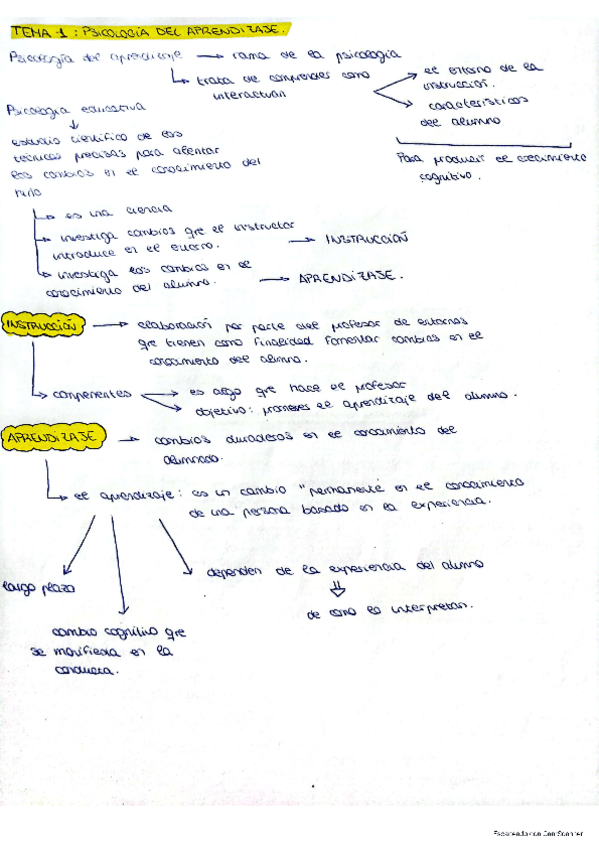 TEMA 1 : PSICOLOGÍA DEL APRENDIZAJE.
Psicología del aprendizaje → rama de la psicología
trata de comprender como
interactúan
el entorno de la
instrucción.
características
del alumno
Para producir el crecimiento
cognitivo.
Psicología educativa
estudio científico de las
técnicas precisas para alentar
los cambios en el conocimiento del
niño
es una ciencia
investiga cambios que el instructor
introduce en el entorno. → INSTRUCCIÓN
investiga los cambios en el
conocimiento del alumno. → APRENDIZAJE.
INSTRUCCIÓN → elaboración por parte del profesor de entornos
que tienen como finalidad fomentar cambios en el
conocimiento del alumno.
componentes → es algo que hace el profesor
objetivo: promover el aprendizaje del alumno.
APRENDIZAJE → cambios duraderos en el conocimiento del
alumnado.
el aprendizaje: es un cambio "permanente" en el conocimiento
de una persona basado en la experiencia.
largo plazo
cambio cognitivo que
se manifiesta en la
conducta.
dependen de la experiencia del alumno
⇓
de como la interpretan.
Escaneado con CamScanner